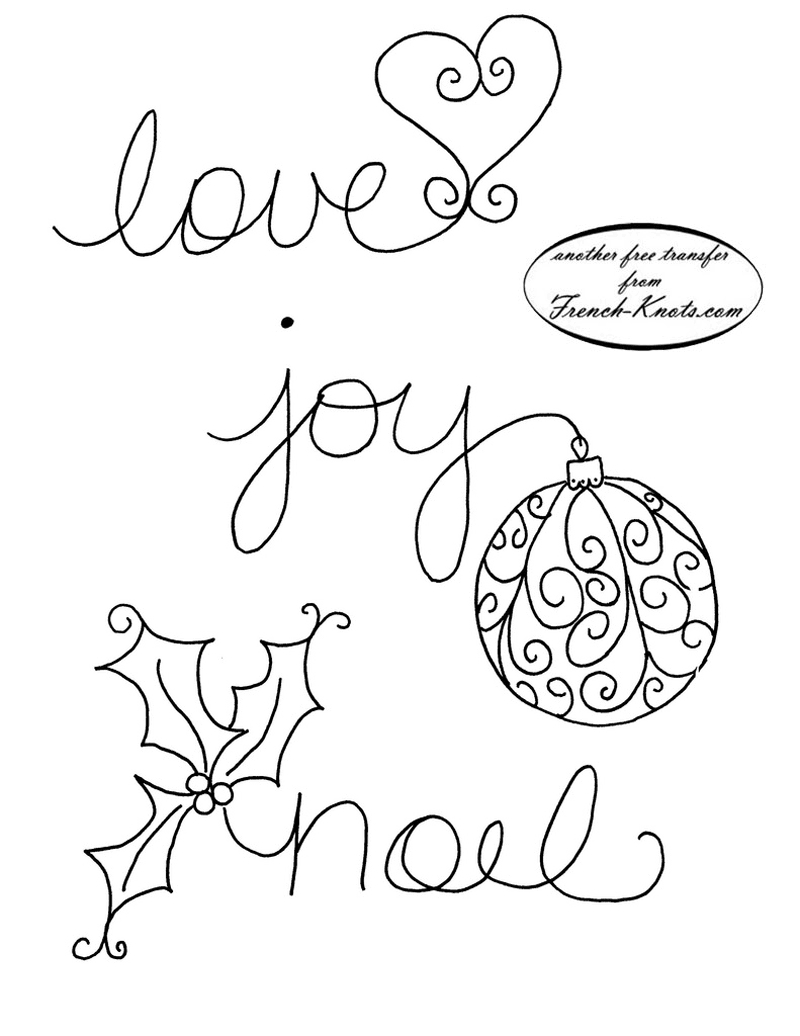 love
another free transfer
from
French-Knots.com
joy
noel